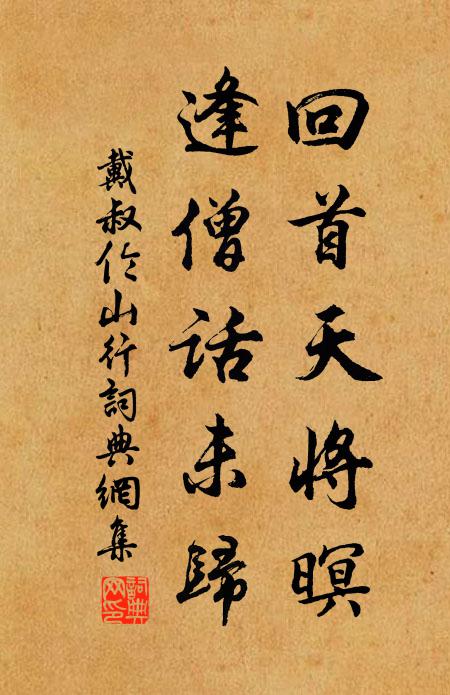 回首天將暝
逢僧話未歸
戴叔伦山行詞典網集
詞典网印